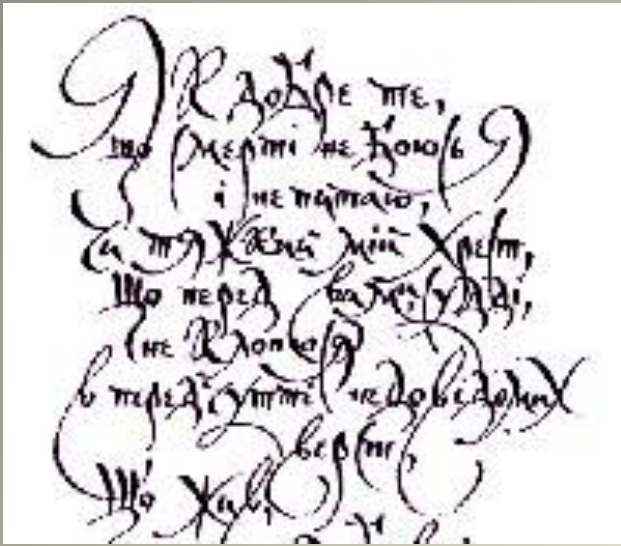 Як добре те,
що смерті не боюсь я
і не питаю,
чи тяжкий мій хрест,
що перед вами, судді,
не клонюся
в передчутті недовідомих
верст,
що жив,